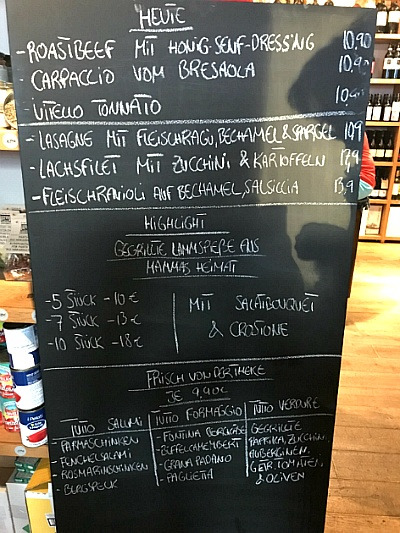 HEUTE
- ROASTBEEF MIT HONIG-SENF-DRESSING 10,90
CARPACCIO VOM BRESAOLA 10,90
VITELLO TONNATO 10,90
- LASAGNE MIT FLEISCHRAGU, BECHAMEL & SPARGEL 10,9
- LACHSFILET MIT ZUCCHINI & KARTOFFELN 17,9
- FLEISCHRAVIOLI AUF BECHAMEL, SALSICCIA 13,9
HIGHLIGHT
GEGRILLTE LAMMSPIEßE AUS
MAMMAS HEIMAT
- 5 STÜCK - 10 €
- 7 STÜCK - 13 €
- 10 STÜCK - 18 €
MIT SALATBOUQUET
& CROSTONE
FRISCH VON DER THEKE
JE 9,90€
TUTTO SALUMI
- PARMASCHINKEN
- FENCHELSALAMI
- ROSMARINSCHINKEN
TUTTO FORMAGGIO
- FONTINA
- BÜFFELCAMEMBERT
- GRANA PADANO
- PAGLIETTA
TUTTO VERDURE
GEGRILLTE
PAPRIKA, ZUCCHINI,
AUBERGINEN,
GETR. TOMATEN,
& OLIVEN